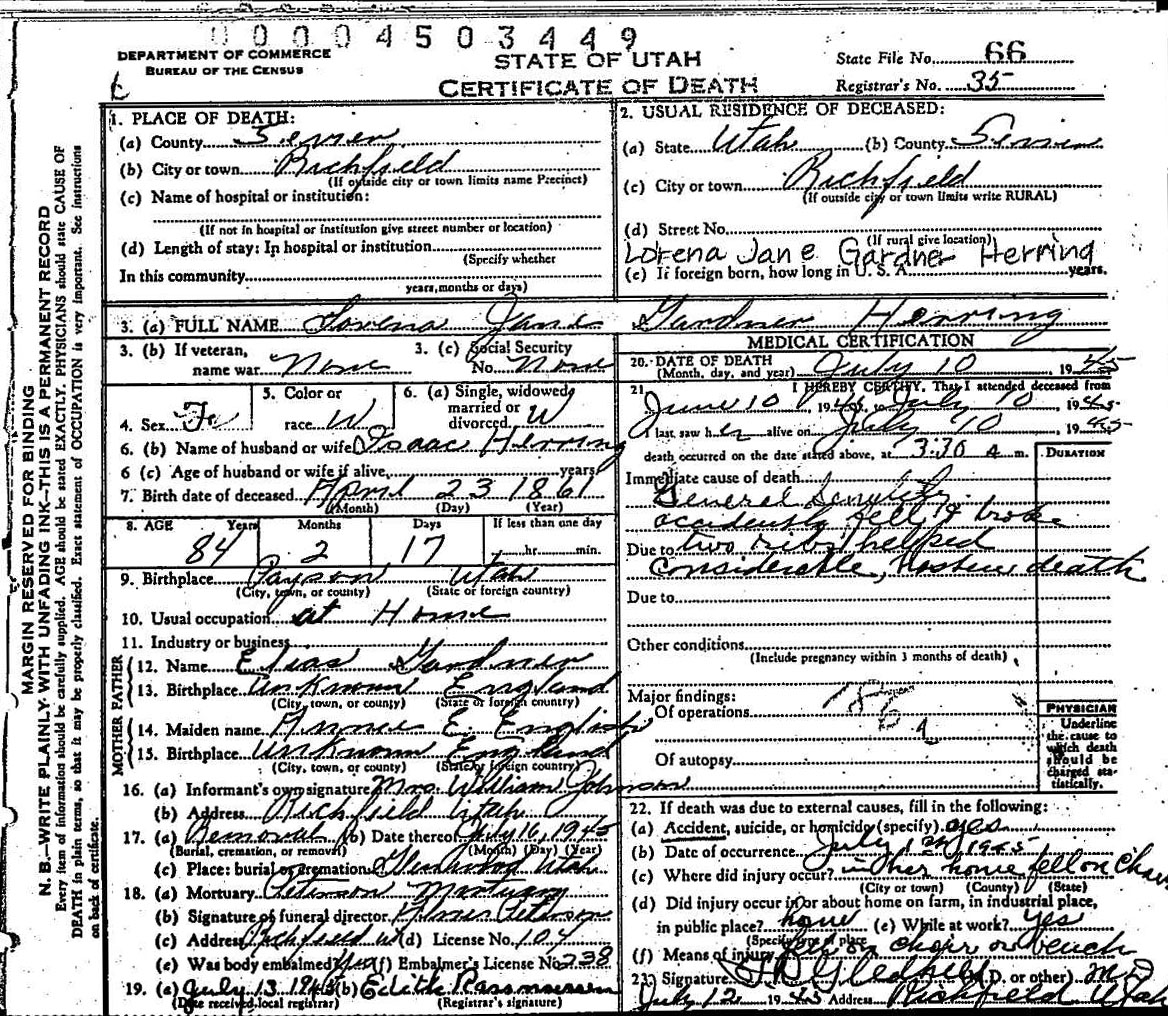 0 0 0 0 4 5 0 3 4 4 9
DEPARTMENT OF COMMERCE
BUREAU OF THE CENSUS
STATE OF UTAH
CERTIFICATE OF DEATH
State File No. 66
Registrar's No. 35
MARGIN RESERVED FOR BINDING
N. B.—WRITE PLAINLY WITH UNFADING INK—THIS IS A PERMANENT RECORD
Every item of information should be carefully supplied. AGE should be stated EXACTLY. PHYSICIANS should state CAUSE OF
DEATH in plain terms, so that it may be properly classified. Exact statement of OCCUPATION is very important. See instructions
on back of certificate.
1. PLACE OF DEATH:
(a) County Sevier
(b) City or town Richfield
(If outside city or town limits name Precinct)
(c) Name of hospital or institution:
(If not in hospital or institution give street number or location)
(d) Length of stay: In hospital or institution
(Specify whether
In this community
years, months or days)
2. USUAL RESIDENCE OF DECEASED:
(a) State Utah (b) County Sevier
(c) City or town Richfield
(If outside city or town limits write RURAL)
(d) Street No.
(If rural give location)
Lorena Jane Gardner Herring
(e) If foreign born, how long in U. S. A. years.
3. (a) FULL NAME Lorena Jane Gardner Herring
3. (b) If veteran, name war None
3. (c) Social Security No. None
4. Sex Fe
5. Color or race W
6. (a) Single, widowed, married or divorced W
6. (b) Name of husband or wife Isaac Herring
6 (c) Age of husband or wife if alive years
7. Birth date of deceased April 23 1861
(Month) (Day) (Year)
8. AGE Years Months Days If less than one day
84 2 17 hr. min.
9. Birthplace Payson Utah
(City, town, or county) (State or foreign country)
10. Usual occupation at Home
11. Industry or business
FATHER
12. Name Elias Gardner
13. Birthplace unknown England
(City, town, or county) (State or foreign country)
MOTHER
14. Maiden name Annie E English
15. Birthplace unknown England
(City, town, or county) (State or foreign country)
16. (a) Informant's own signature Mrs. William Johnson
(b) Address Richfield Utah
17. (a) Removal (b) Date thereof July 16, 1945
(Burial, cremation, or removal) (Month) (Day) (Year)
(c) Place: burial or cremation Glenwood Utah
18. (a) Mortuary Peterson Mortuary
(b) Signature of funeral director Elmer Peterson
(c) Address Richfield U (d) License No. 104
(e) Was body embalmed? yes (f) Embalmer's License No. 238
19. (a) July 13 1945 (b) Edith Rasmussen
(Date received local registrar) (Registrar's signature)
MEDICAL CERTIFICATION
20. DATE OF DEATH July 10, 1945
(Month, day, and year)
21. I HEREBY CERTIFY, That I attended deceased from
June 10 1945 to July 10 1945
I last saw her alive on July 10 1945
death occurred on the date stated above, at 3:30 a m.
DURATION
Immediate cause of death
General Senility
accidently fell & broke
Due to two ribs helped
considerable, hasten death
Due to
Other conditions
(Include pregnancy within 3 months of death)
Major findings:
Of operations
186
Of autopsy
PHYSICIAN
Underline
the cause to
which death
should be
charged sta-
tistically.
22. If death was due to external causes, fill in the following:
(a) Accident, suicide, or homicide (specify) yes
(b) Date of occurrence July 1st 1945
(c) Where did injury occur? in her home fell on chair
(City or town) (County) (State)
(d) Did injury occur in or about home on farm, in industrial place,
in public place? home (e) While at work? yes
(Specify type of place)
(f) Means of injury fell on chair or bench
23. Signature Gledhill (M.D. or other) M D
July 12 1945 Address Richfield Utah